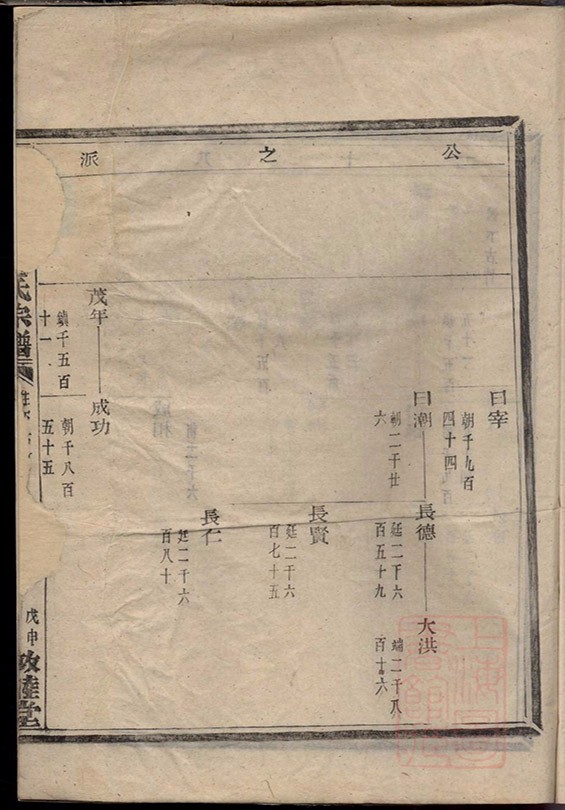 公之派
曰宰
朝千九百
四十四
曰潮
朝二千廿
六
長德
廷二千六
百五十九
大洪
端二千八
百十六
長賢
廷二千六
百七十五
長仁
廷二千六
百八十
茂年
鎮千五百
十一
成功
朝千八百
五十五
氏宗譜
戊申
敦睦堂